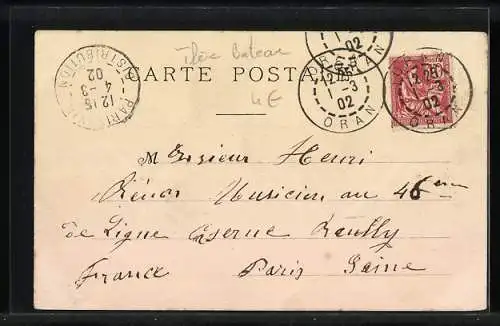 thère bateau
CARTE POSTALE
4E
PARIS DISTRIBUTION
12 15
4 -3
02
ORAN
1 -3
02
ORAN
1 -3
02
ORAN
Monsieur Henri
Rénor Musicien au 46ème
de Ligne Caserne Reuilly
France Paris Seine